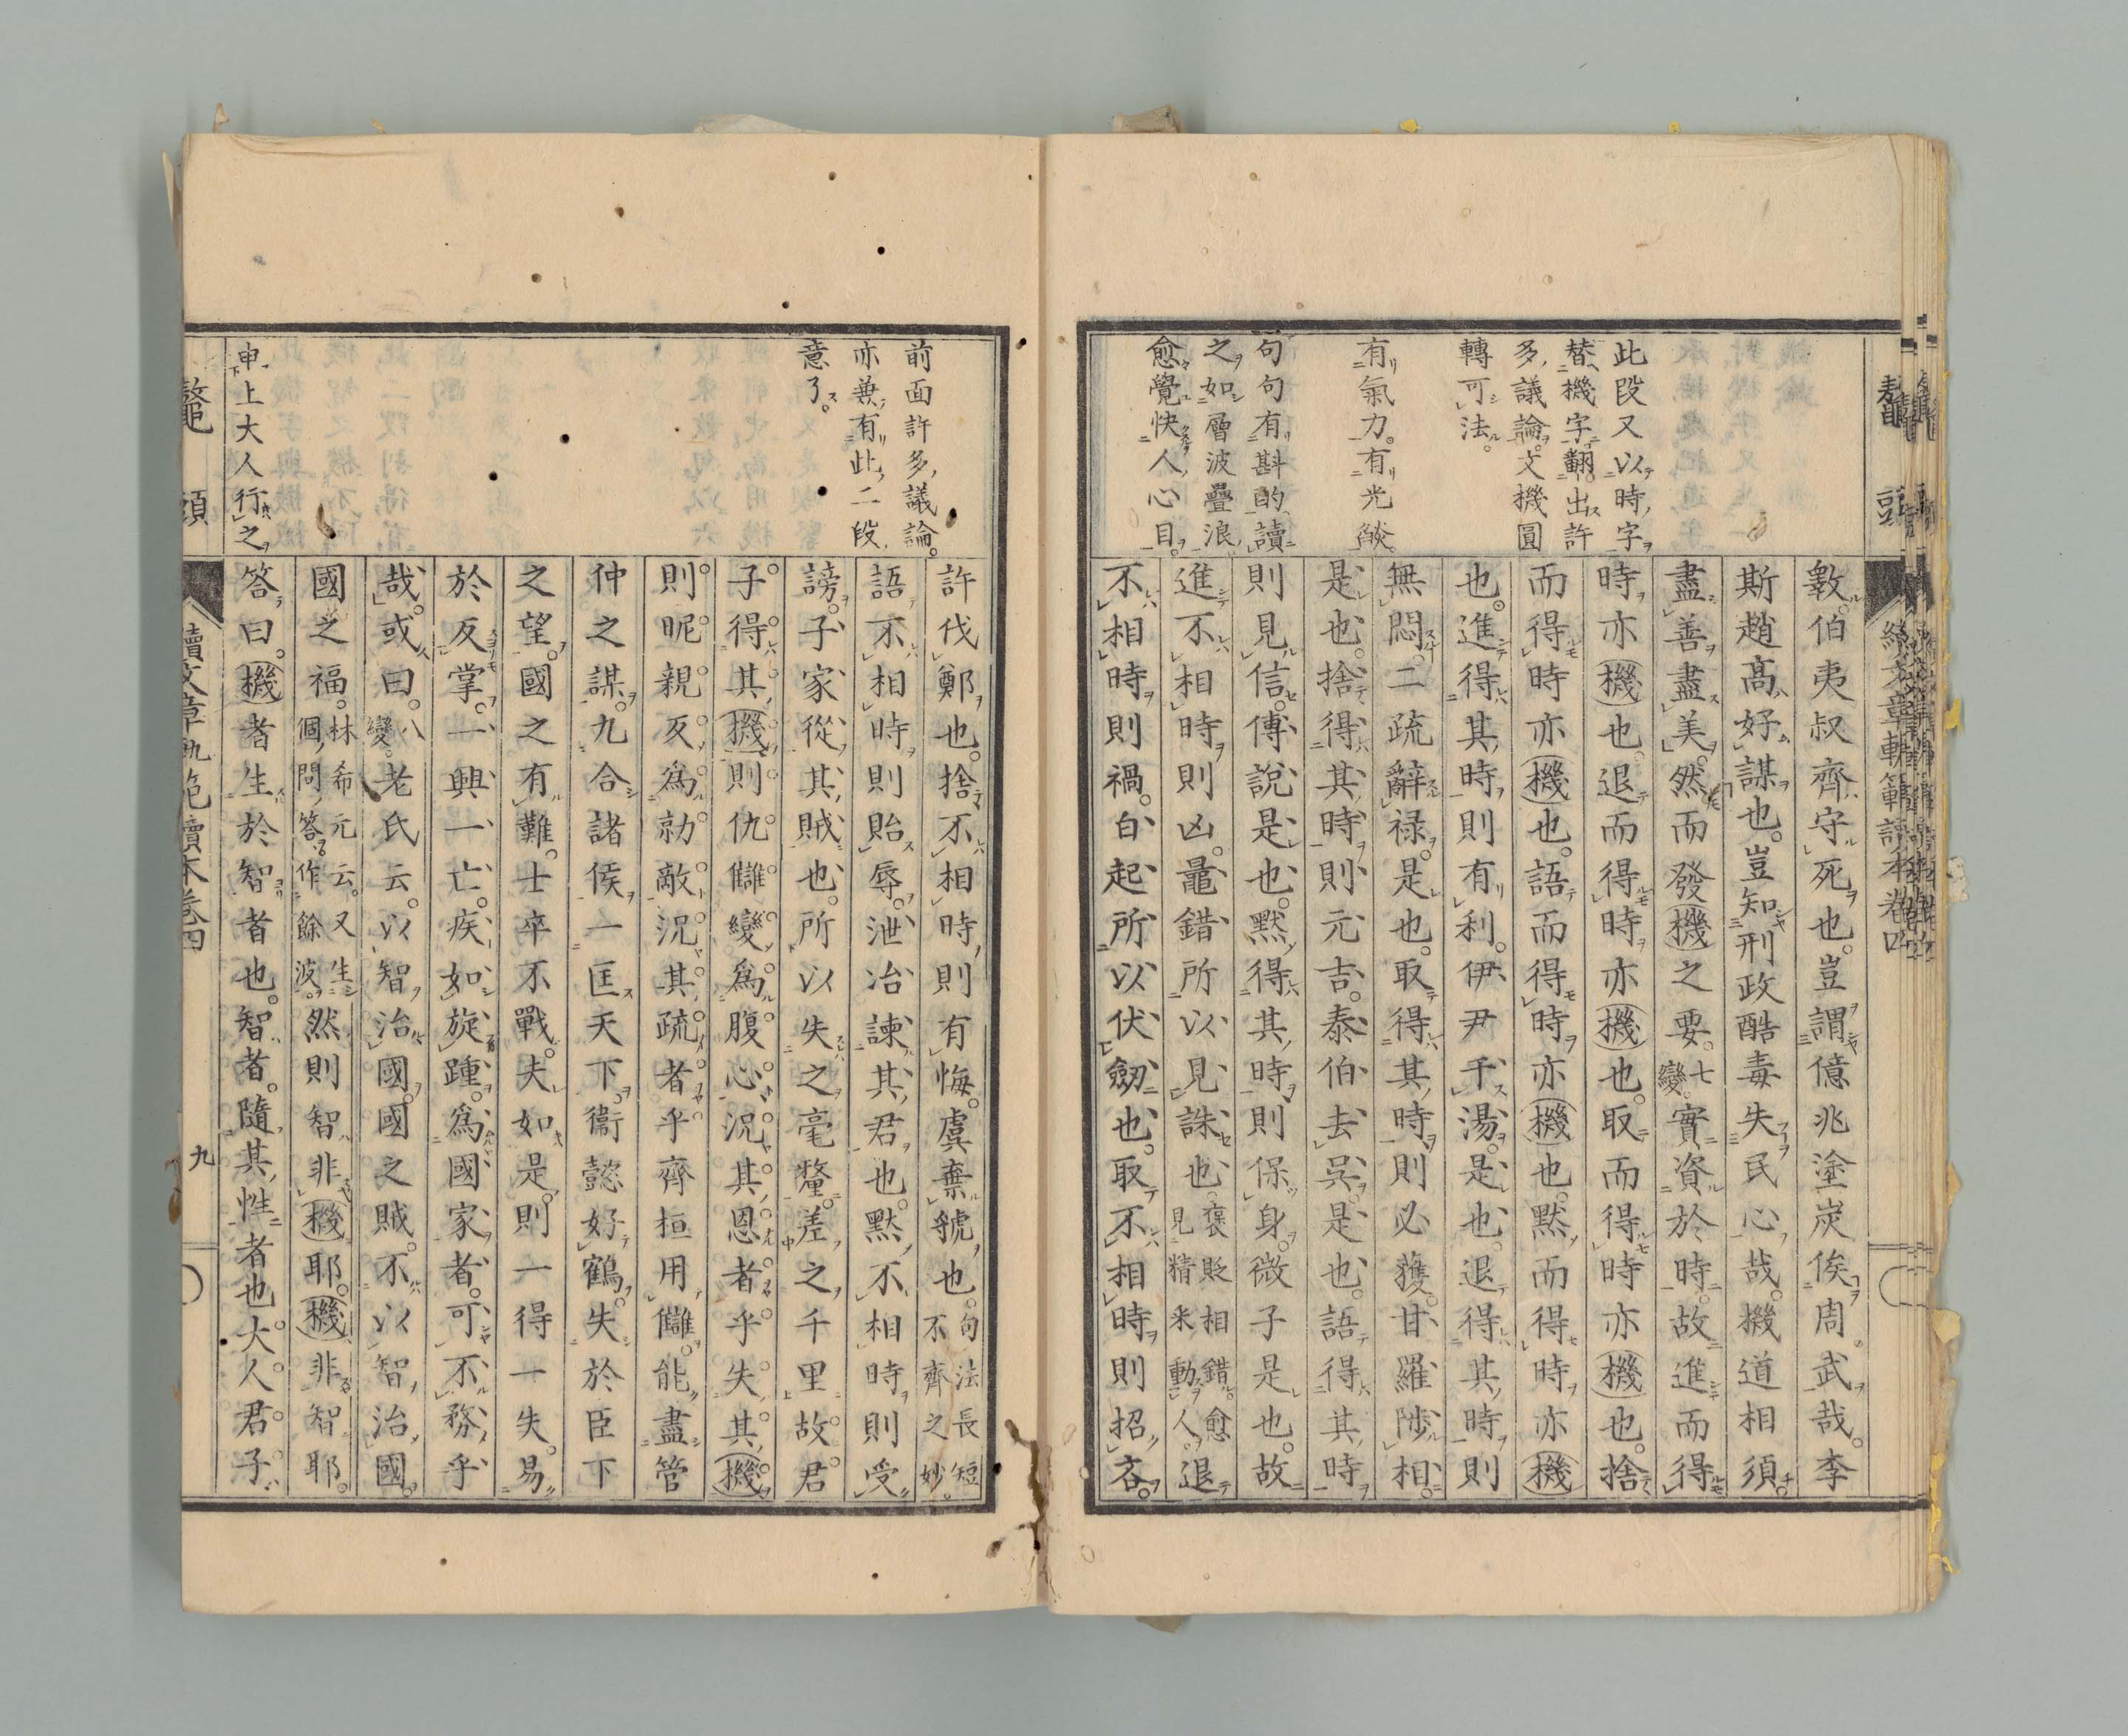 此段又以時字
替機字翻出許
多議論文機圓
轉可法。
有氣力。有光燄。
句句有斟酌讀
之如層波疊浪
愈覺快人心目。
數。伯夷叔齊守死也。豈謂億兆塗炭俟周武哉。李
斯趙高好謀也。豈知刑政酷毒失民心哉。機道相須。
盡善盡美。然而發機之要。七變。實資於時。故進而得
時亦機也。退而得時亦機也。取而得時亦機也。捨
而得時亦機也。語而得時亦機也。默而得時亦機
也。進得其時則有利。伊尹干湯是也。退得其時則
無悶。二疏辭禄是也。取得其時則必獲。甘羅陟相
是也。捨得其時則元吉。泰伯去吳是也。語得其時
則見信。傅說是也。默得其時則保身。微子是也。故
進不相時則凶。鼂錯所以見誅也。褒貶相錯。愈見精采動人。退
不相時則禍。白起所以伏劒也。取不相時則招吝。
前面許多議論。
亦兼有此二段
意了。
申上大人行之
許伐鄭也。捨不相時則有悔。虞棄虢也。句法長短不齊之妙。
語不相時則貽辱。泄冶諫其君也。默不相時則受
謗。子家從其賊也。所以失之毫釐。差之千里。故君
子得其機則仇讎變爲腹心。況其恩者乎。失其機
則昵親反爲勍敵。況其疏者乎。齊桓用讎。能盡管
仲之謀。九合諸侯一匡天下。衞懿好鶴。失於臣下
之望。國之有難。士卒不戰。夫如是。則一得一失。易
於反掌。一興一亡。疾如旋踵。爲國家者。可不務乎
哉。或曰。八變。老氏云。以智治國。國之賊。不以智治國。
國之福。林希元云。又生個問答。作餘波。然則智非機耶。機非智耶。
答曰。機者生於智者也。智者。隨其性者也。大人君子
鼇頭
續文章軌範讀本卷四
九